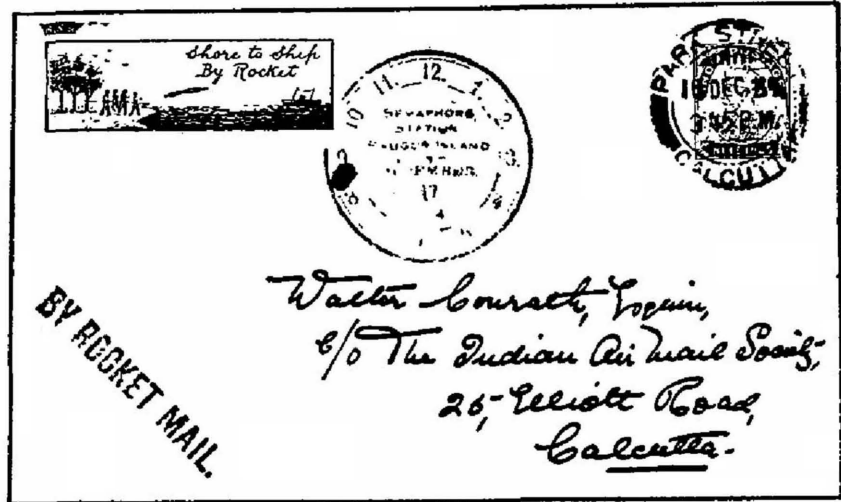 Shore to Ship
By Rocket
10 11 12 1 2 3 4
SEMAPHORE
STATION
SAUGOR ISLAND
17
PARK STREET
DEC
P.M.
CALCUTTA
BY ROCKET MAIL.
Walter Conrath, Esquire,
c/o The Indian Air Mail Society,
25, Elliott Road,
Calcutta.